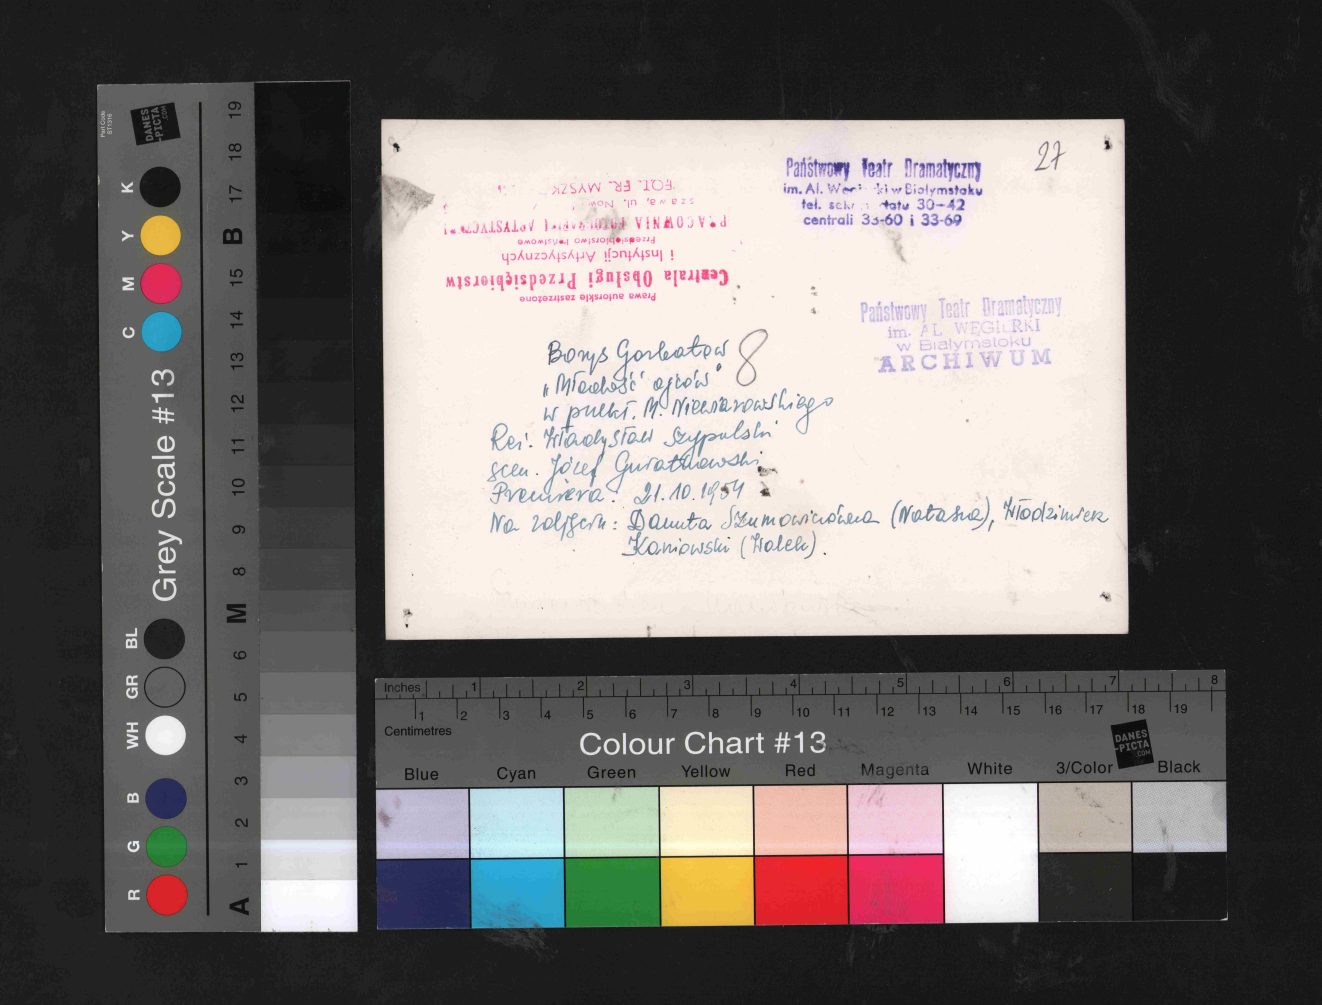 27
Państwowy Teatr Dramatyczny
im. Al. w Białymstoku
tel. 30-42
centrali 33-60 i 33-69
Prawa autorskie zastrzeżone
Centrala Obsługi Przedsiębiorstw
i Instytucji Artystycznych
Przedsiębiorstwo Państwowe
PRACOWNIA
ul. Now
FOT. FR. MYSZK
Państwowy Teatr Dramatyczny
im. AL. WĘGIERKI
w Białymstoku
ARCHIWUM
Borys Gorbatow 8
"Młodość ojców"
w przekł. M. Niewiarowskiego
Reż. Władysław Szypulski
scen. Józef
Premiera: 21.10.1954
Na zdjęciu: Danuta Szumowiczówna (Natasza), Włodzimierz
Kaniowski (Wolek).
Part Code
ST1316
DANES
-PICTA
.COM
Grey Scale #13
K
Y
M
C
BL
GR
WH
B
G
R
19
18
17
B
15
14
13
12
11
10
9
8
M
6
5
4
3
2
1
A
Inches 1 2 3 4 5 6 7 8
1 2 3 4 5 6 7 8 9 10 11 12 13 14 15 16 17 18 19
Centimetres
Colour Chart #13
DANES
-PICTA
.COM
Blue Cyan Green Yellow Red Magenta White 3/Color Black